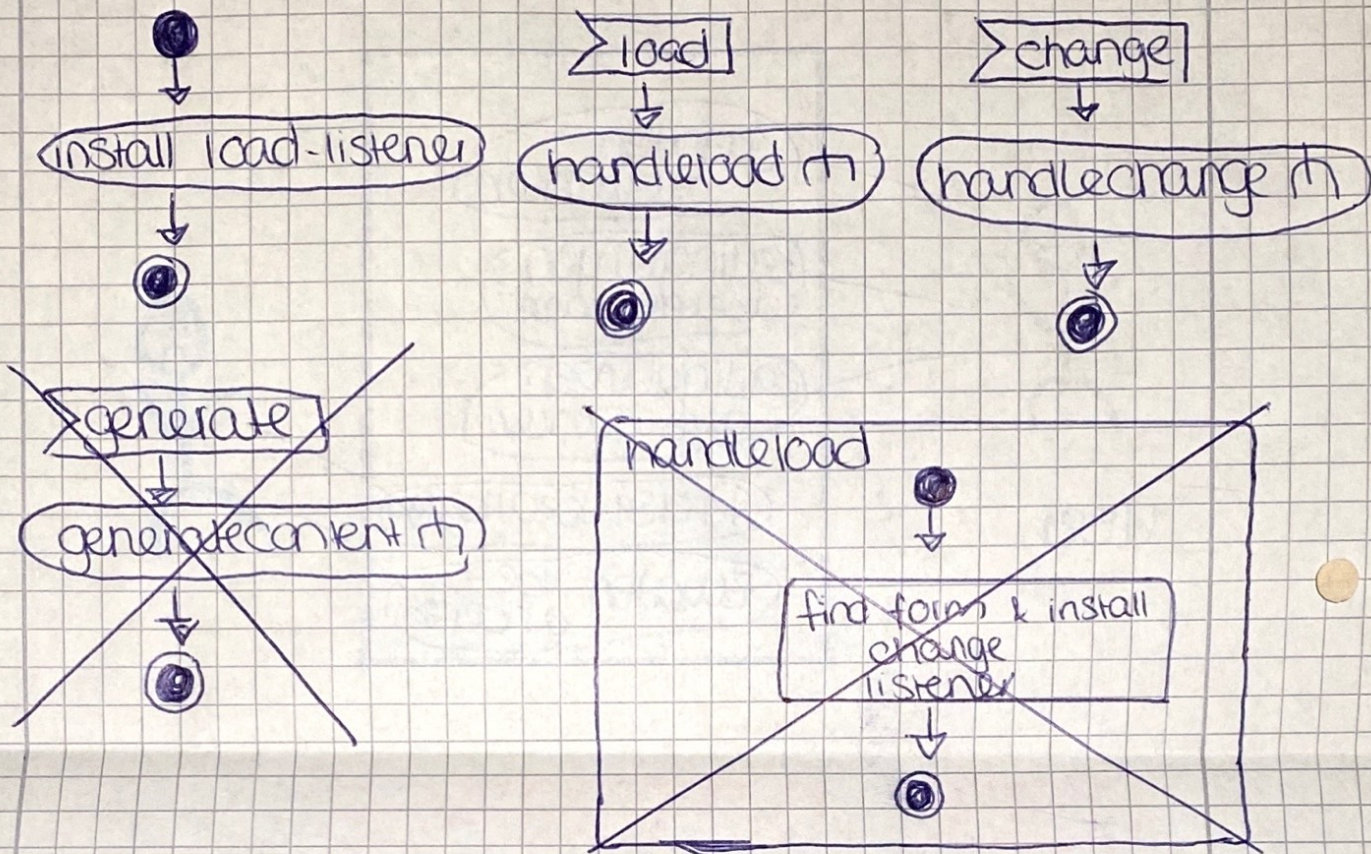 load
change
install load-listener
handleload
handlechange
generate
generatecontent
handleload
find form & install
change
listener